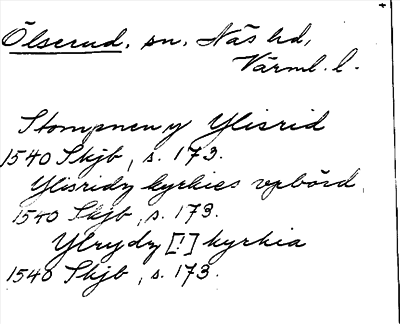 Ölserud, sn, Näs hd,
Värml. l.
Stompnen y Ylisrid
1540 Skjb, s. 173.
Ylisridz kyrkies vpbörd,
1540 Skjb, s. 173.
Ylrydz [!] kyrkia
1540 Skjb, s. 173.